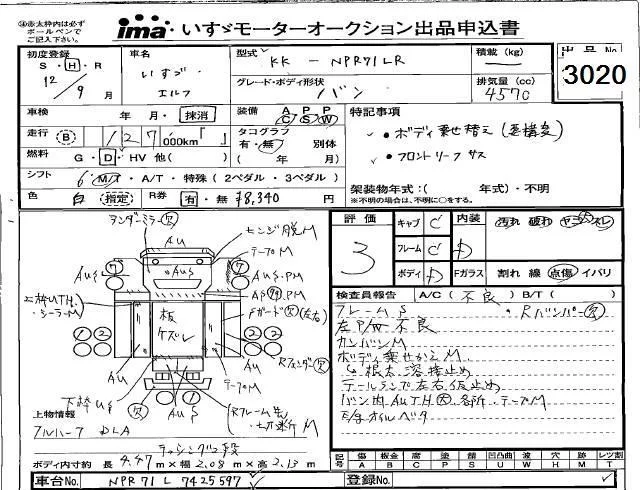 ㊟※赤太枠内は必ずボールペンでご記入ください。
ima いすゞモーターオークション出品申込書
出品No 3020
初度登録 S・H・R 12/9月
車名 いすゞ エルフ
型式 KK-NPR71LR
グレード・ボディ形状 バン
積載(kg) ー
排気量(cc) 4570
車検 年 月・抹消
装備 A/C P/S P/W
走行 B 127,000km『 』
タコグラフ 有・無 別体 ( 年 月)
燃料 G・D・HV 他( )
シフト 6 M/T・A/T・特殊(2ペダル・3ペダル)
色 白(指定) R券 有・無 ¥8,340 円
特記事項
・ボディ乗せ替え(要構変)
・フロントリーフサス
架装物年式:( 年式)・不明
※不明の場合は、不明に○をする。
評価 3
キャブ C
フレーム C
ボディ D
内装 D
汚れ 破れ ヤニ スレ
Fガラス 割れ 線 点傷 イバリ
検査員報告 A/C(不良) B/T( )
フレームS ・Rバンパー欠
左P/W不良
カンバンM
ボディ乗せかえM
↳根太溶接止め
テールランプ左右仮止め
バン内AUTH大、各所テープM
E/gオイルベタ
アンダーミラー欠
ヒンジ脱M
テープM
AU
AUS
AUS.PM
Fガード欠(左右)
上枠UTH.シーラーM
板ケズレ
Rフェンダー欠
AU
テープM
下枠US
AUS
上物情報
フルハーフ DLA
Rフレーム先切断M
ラッシング2段
ボディ内寸約 長4.47m×幅2.08m×高2.13m
記号 傷A 板金B 腐C 塗P 錆S 凹凸U 波W 穴H 跡M レツ割T
車台No. NPR71L 7425597
登録No.